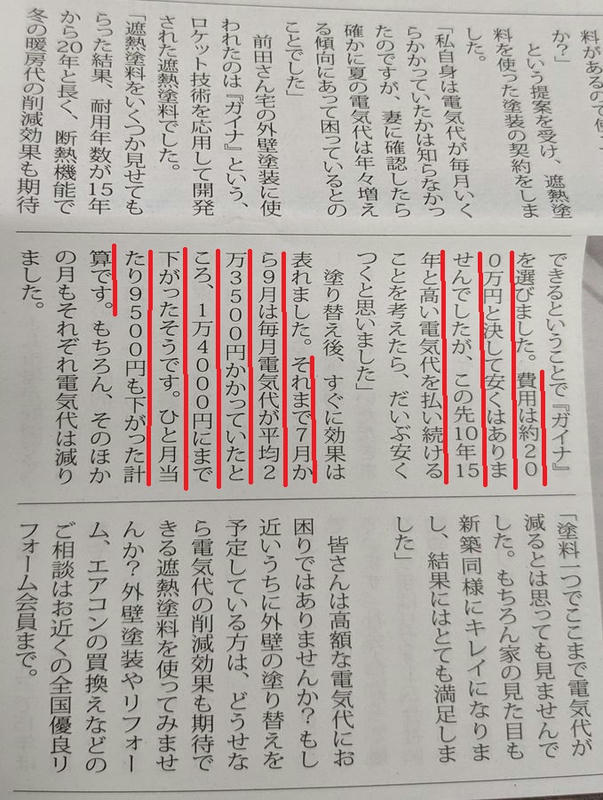 料があるので使
か?」
という提案を受け、遮熱塗
料を使った塗装の契約をしま
した。
「私自身は電気代が毎月いく
らかかっていたかは知らなかっ
たのですが、妻に確認したら
確かに夏の電気代は年々増え
る傾向にあって困っているとの
ことでした」
前田さん宅の外壁塗装に使
われたのは『ガイナ』という、
ロケット技術を応用して開発
された遮熱塗料でした。
「遮熱塗料をいくつか見せても
らった結果、耐用年数が15年
から20年と長く、断熱機能で
冬の暖房代の削減効果も期待
できるということで『ガイナ』
を選びました。費用は約20
0万円と決して安くはありま
せんでしたが、この先10年15
年と高い電気代を払い続ける
ことを考えたら、だいぶ安く
つくと思いました」
塗り替え後、すぐに効果は
表れました。それまで7月か
ら9月は毎月電気代が平均2
万3500円かかっていたと
ころ、1万4000円にまで
下がったそうです。ひと月当
たり9500円も下がった計
算です。もちろん、そのほか
の月もそれぞれ電気代は減り
ました。
「塗料一つでここまで電気代が
減るとは思っても見ませんで
した。もちろん家の見た目も
新築同様にキレイになりま
し、結果にはとても満足しま
した」
皆さんは高額な電気代にお
困りではありませんか?もし
近いうちに外壁の塗り替えを
予定している方は、どうせな
ら電気代の削減効果も期待で
きる遮熱塗料を使ってみませ
んか?外壁塗装やリフォー
ム、エアコンの買換えなどの
ご相談はお近くの全国優良リ
フォーム会員まで。